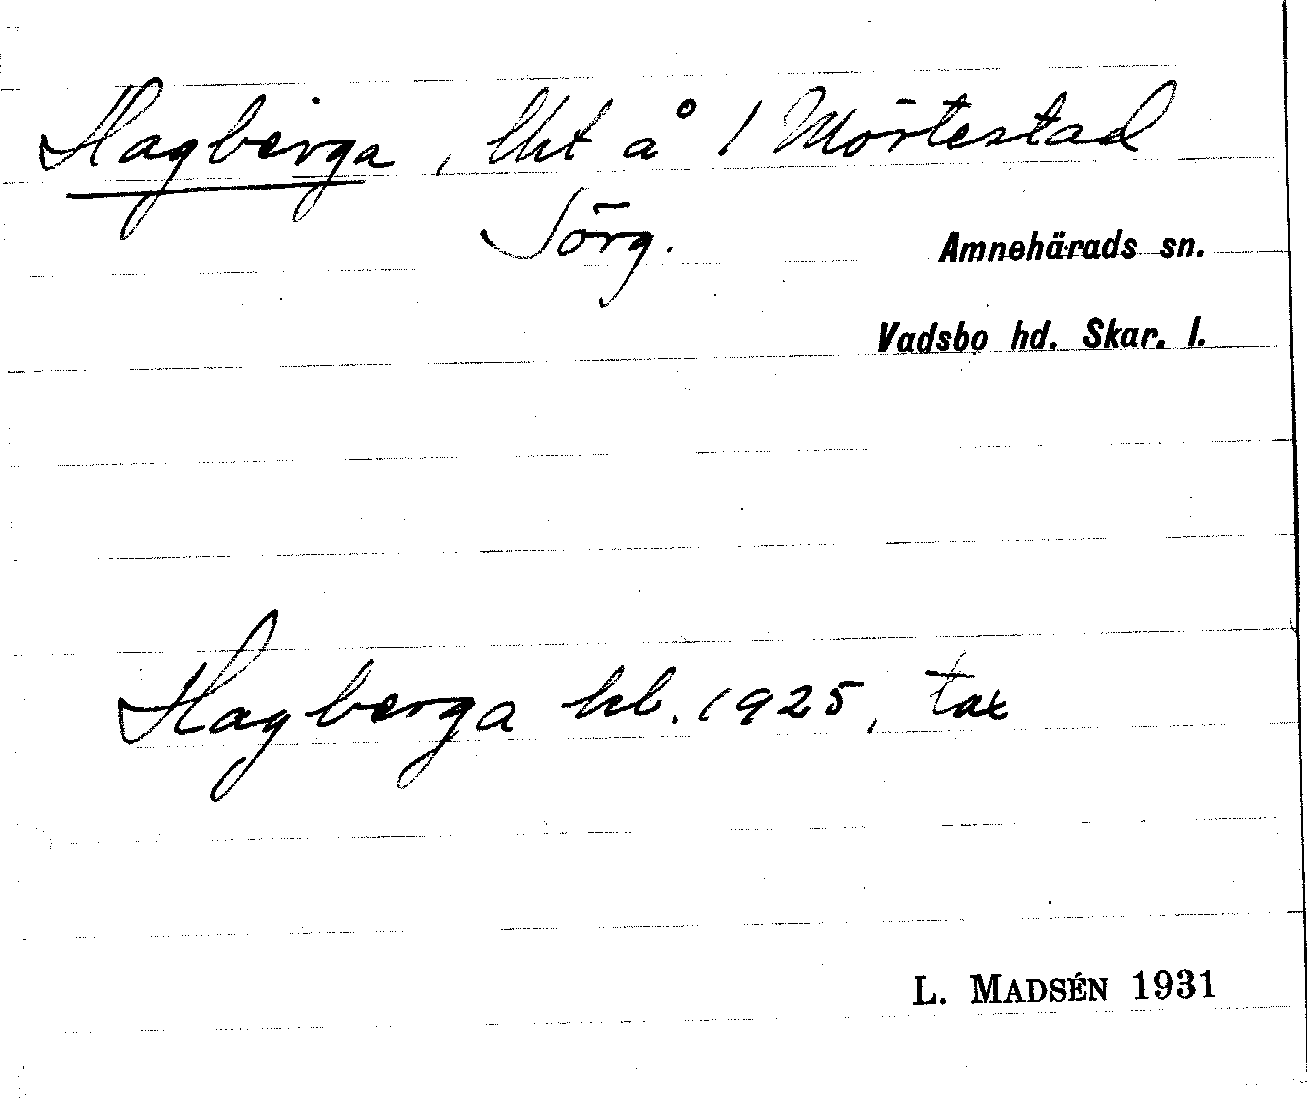 Hagberga, lht å 1 Mörtestad
Sörg.
Amnehärads sn.
Vadsbo hd. Skar. l.
Hagberga hl. 1925, tax
L. MADSÉN 1931